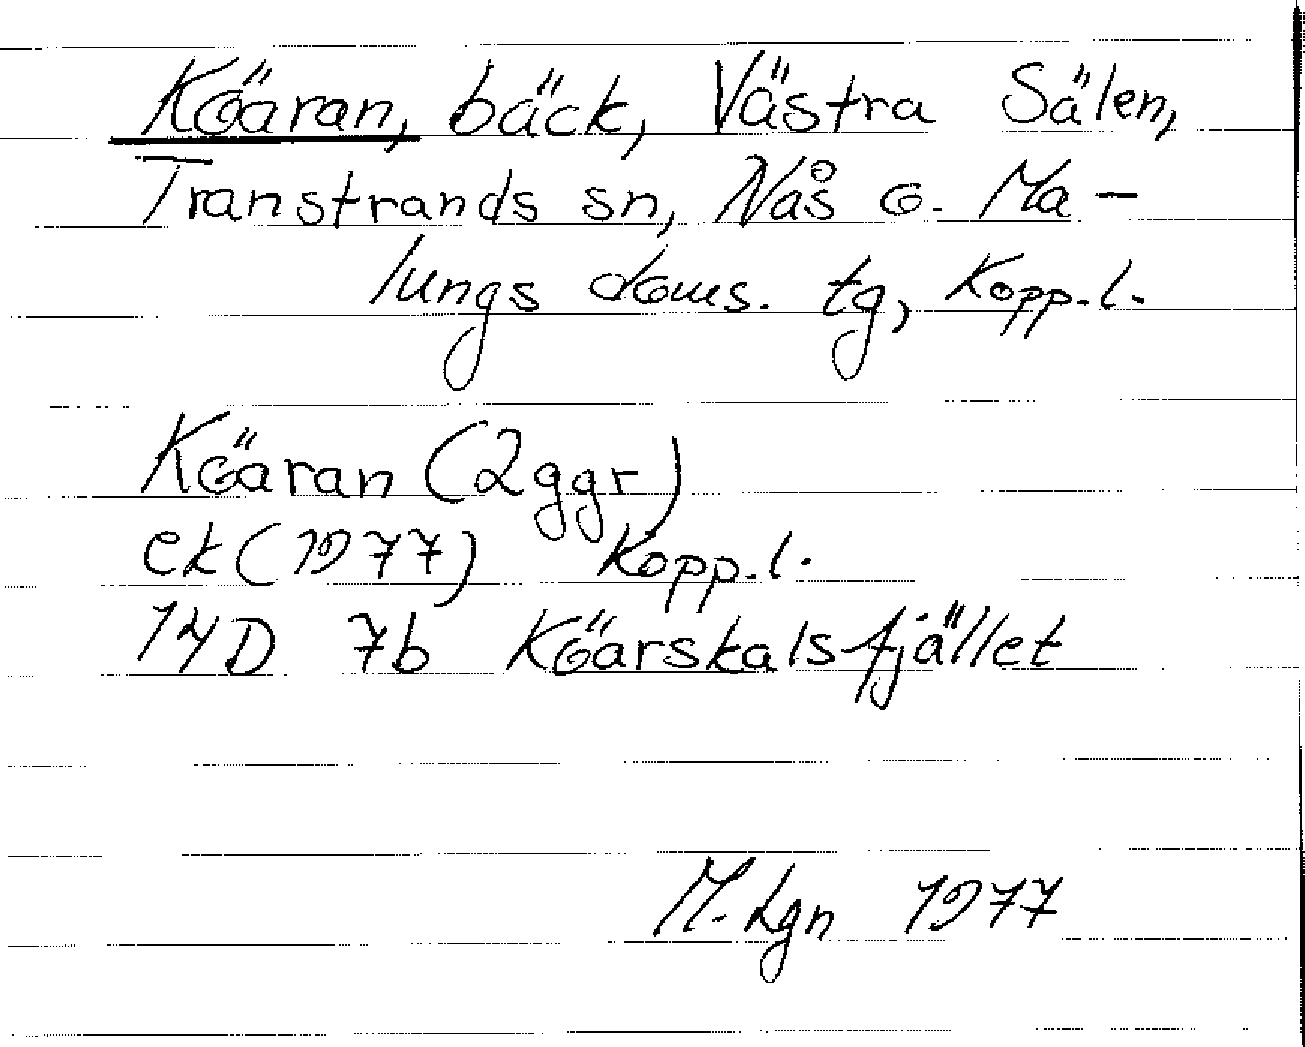 Köaran, bäck, Västra Sälen,
Transtrands sn, Nås o. Ma-
lungs doms. tg, Kopp.l.
Köaran (2ggr)
ek (1977) Kopp.l.
14D 7b Köarskalsfjället
M. Lgn 1977